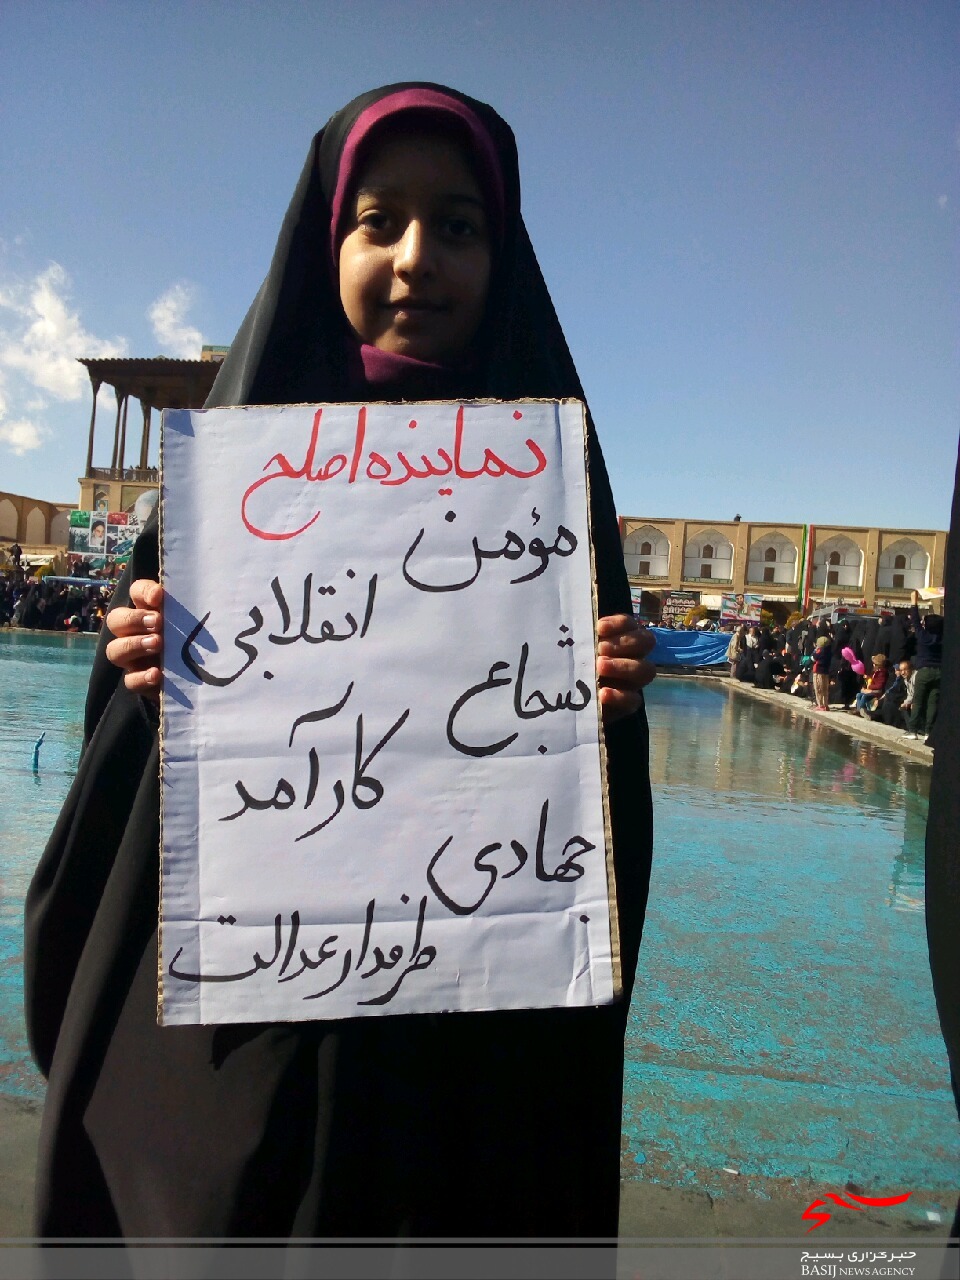 نماینده اصلح
مؤمن
انقلابی
شجاع
کارآمد
جهادی
طرفدار عدالت
خبرگزاری بسیج
BASIJ NEWS AGENCY